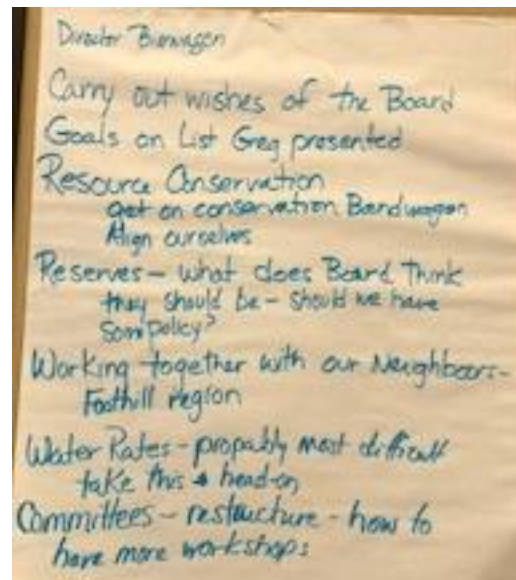 Director Bierwagen
Carry out wishes of the Board
Goals on List Greg presented
Resource Conservation
Get on conservation Bandwagon
Align ourselves
Reserves - what does Board Think
they should be - should we have
Som policy?
Working together with our Neighboors -
Foothill region
Water Rates - propably most difficult
take this head-on
Committees - restructure - how to
have more workshops